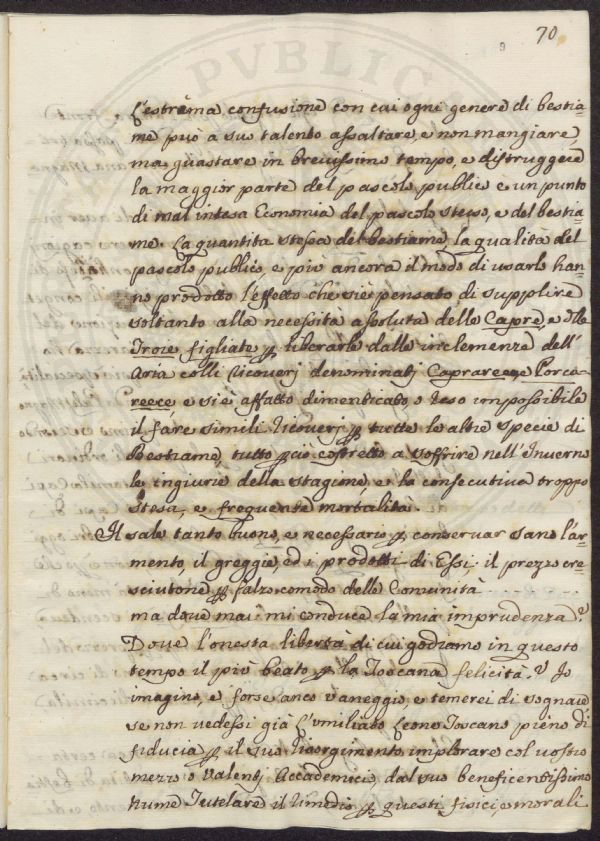 70
L'estrema confusione con cui ogni genere di bestia=
me può a suo talento assaltare, e non mangiare
ma guastare in brevissimo tempo, e distruggere
la maggior parte del pascolo publico e un punto
di mal intesa Economia del pascolo stesso, e del bestia=
me. La quantita stessa del bestiame, la qualità del
pascolo publico, e più ancora il modo di usarlo han=
no prodotto l'effetto che si è pensato di supplire
soltanto alla necessità assoluta delle Capre, e delle
Troie figliate p liberarle dalle inclemenze dell'
Aria colli ricoverj denominatj Caprareece, e Porca=
reece e si è affatto dimenticato o reso impossibile
il fare simili ricoverj p tutte le altre specie di
Bestiame, tutto p ciò costretto a soffrire nell'Inverno
le ingiurie della stagione, e la consecutiva troppo
stesa, e frequente mortalità.
Il sale tanto buono, e necessario p conservar sano l'ar=
mento, il greggie, ed i prodotti di Essi, il prezzo cre=
sciutone p falso comodo delle Comunità
ma dove mai mi conduce la mia imprudenza?
Dove l'onesta libertà di cui godiamo in questo
tempo il più beato p la Toscana felicità? Io
imagino, e forse anco vaneggio, e temerei di sognare
se non vedessi già l'umiliato Leone Toscano pieno di
fiducia p il suo risorgimento implorare col vostro
mezzo o Valentj Accademici dal suo beneficentissimo
Nume Tutelare il rimedio p questi fisici, e morali
PVBLICA